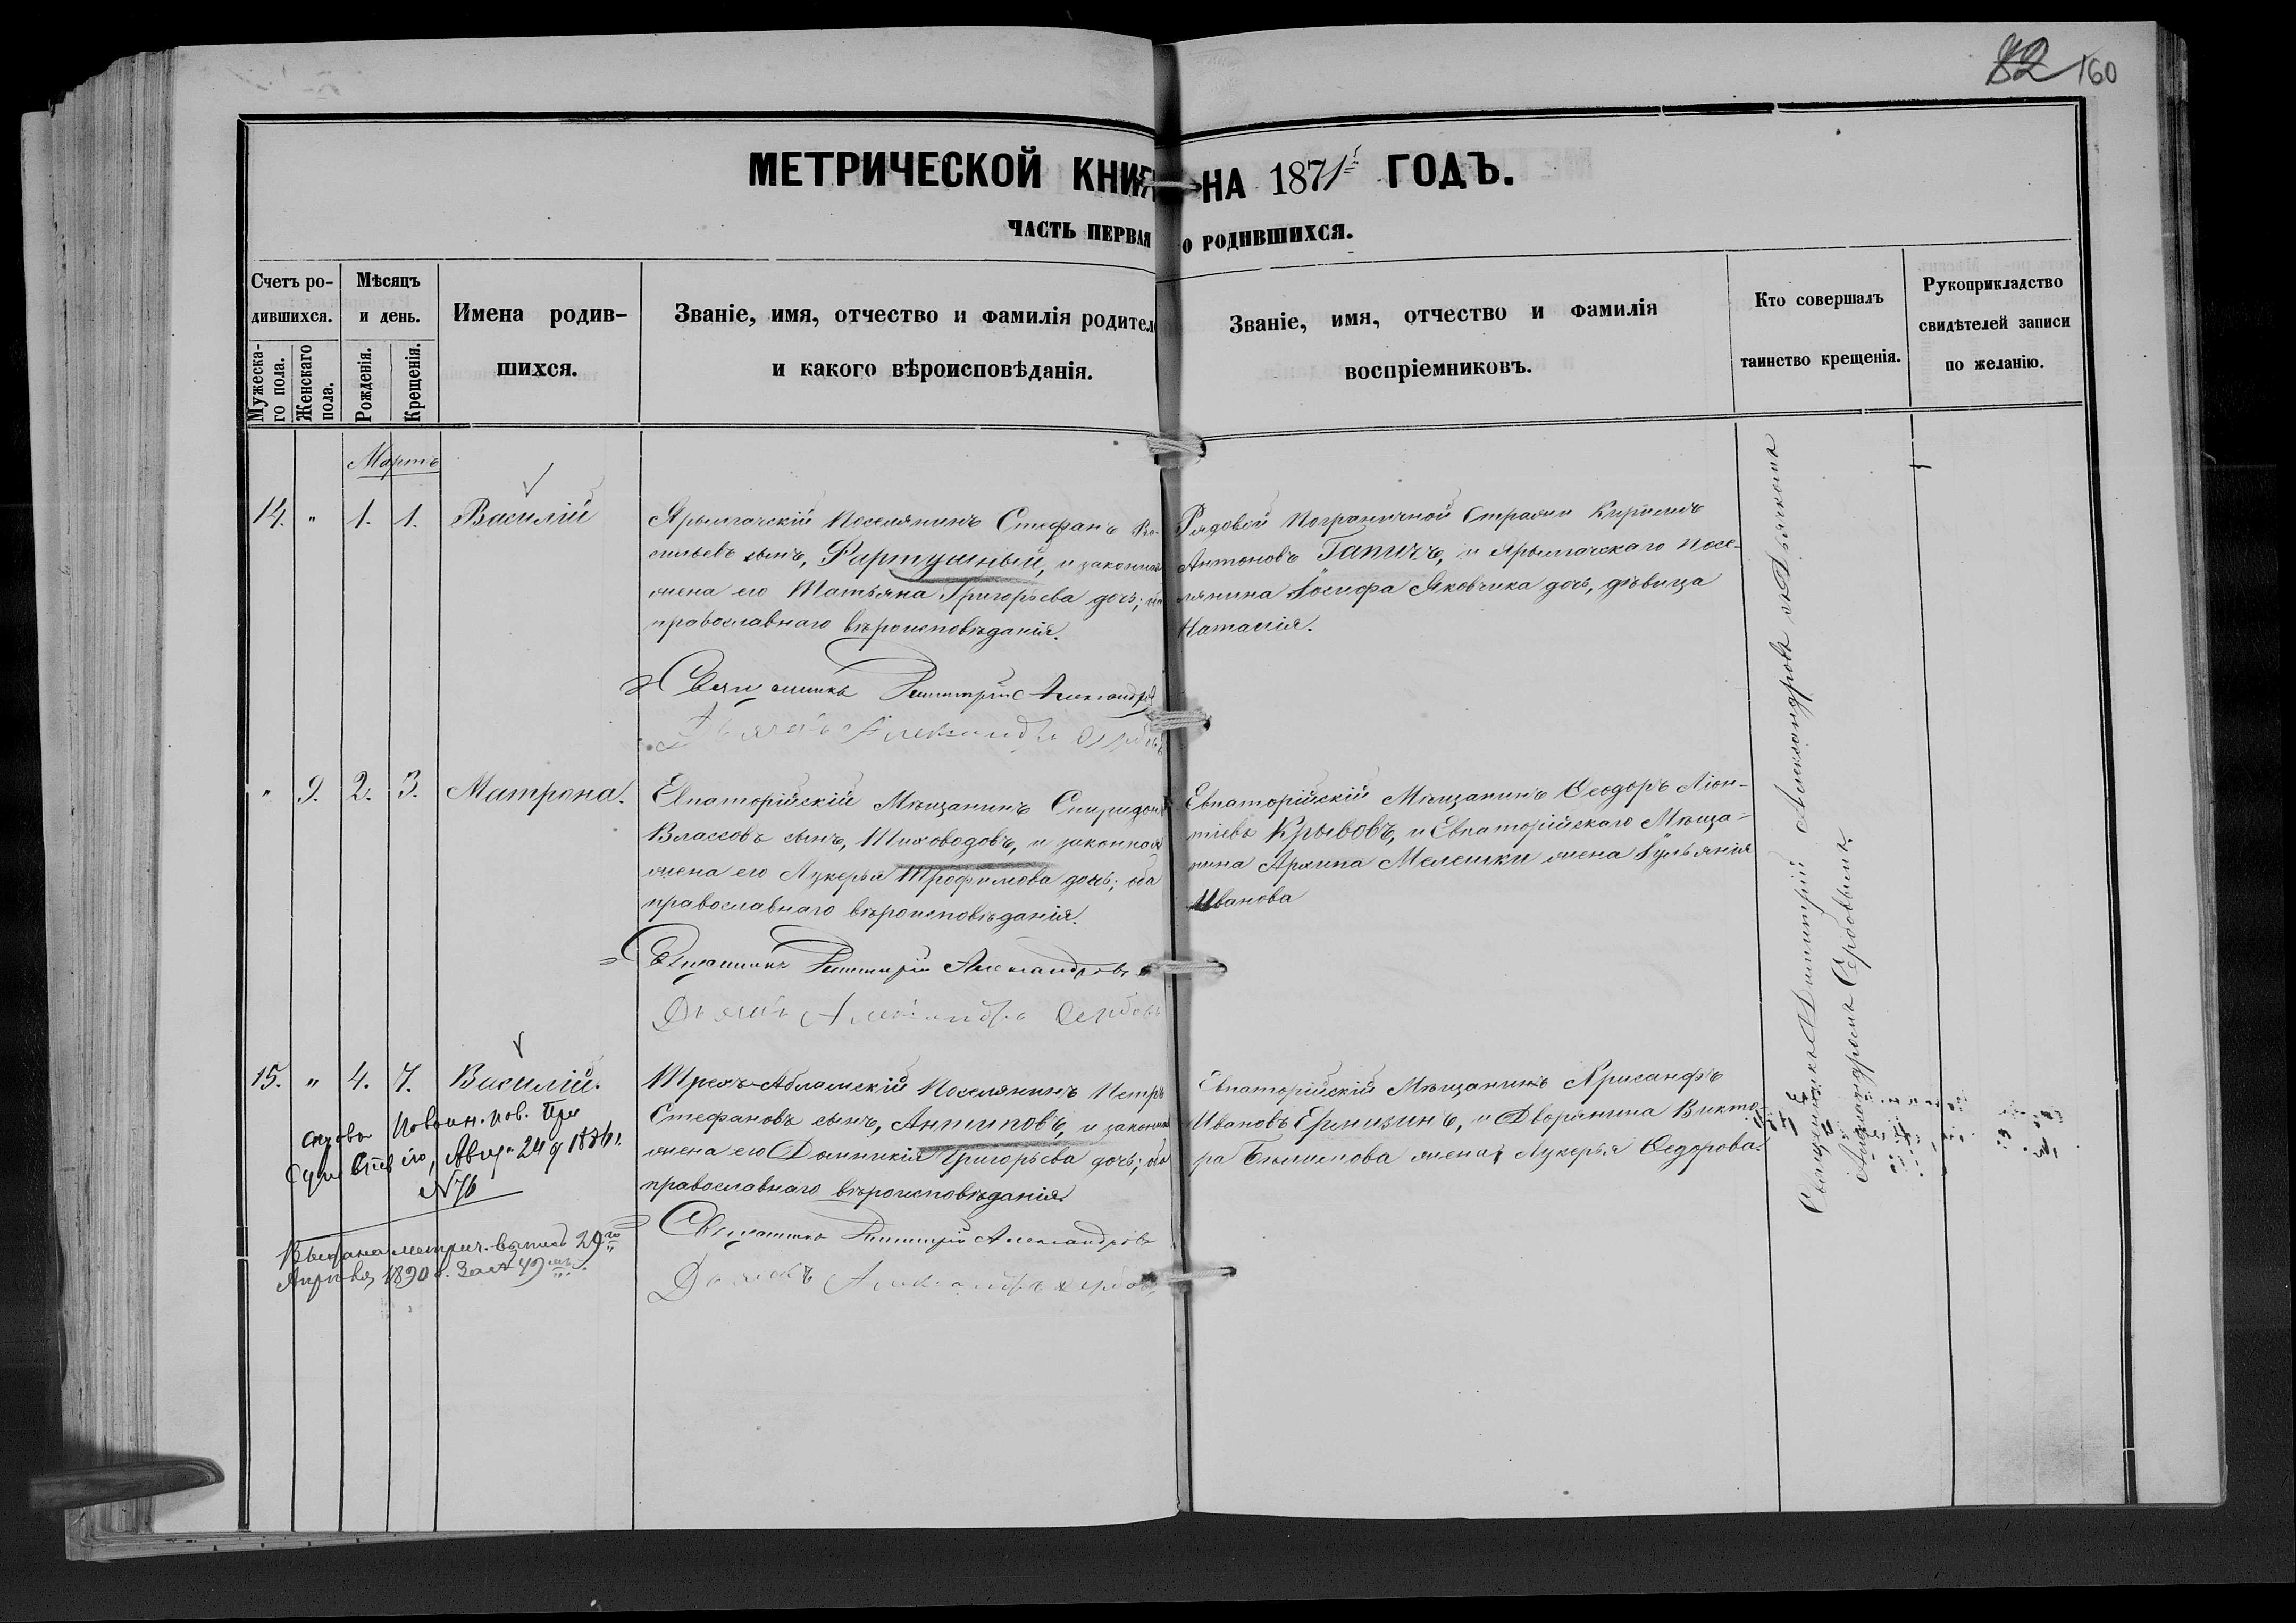 82 160
МЕТРИЧЕСКОЙ КНИГ НА 1871й ГОДЪ.
ЧАСТЬ ПЕРВАЯ О РОДИВШИХСЯ.
Счетъ ро-
дившихся.
Мужеска-
го пола.
Женскаго
пола.
Мѣсяцъ
и день.
Рожденія.
Крещенія.
Имена родив-
шихся.
Званіе, имя, отчество и фамилія родител
и какого вѣроисповѣданія.
Званіе, имя, отчество и фамилія
воспріемниковъ.
Кто совершалъ
таинство крещенія.
Рукоприкладство
свидѣтелей записи
по желанію.
Мартъ
14. " 1. 1. Василій
Ярылгачскій Поселянинъ Стефанъ Ва-
сильевъ сынъ, и законная
жена его Татьяна Григорьева дочь;
православнаго вѣроисповѣданія.
Священникъ Димитрій Александров
Дьячекъ Александръ Сербов
Рядовой Пограничной Стражи Кирилъ
Антоновъ Гапичъ, и Ярылгачскаго посе-
лянина Іосифа Яковчика дочь, дѣвица
Наталія.
" 9. 2. 3. Матрона.
Евпаторійскій Мѣщанинъ Спиридонъ
Власовъ сынъ, Тиховодовъ, и законная
жена его Лукерья Трофимова дочь; оба
православнаго вѣроисповѣданія.
Священникъ Димитрій Александровъ
Дьячекъ Александръ Сербовъ
Евпаторійскій Мѣщанинъ Ѳеодоръ Ліон-
тіевъ Крывовъ, и Евпаторійскаго Мѣща-
нина Архипа Мелешки жена Іульянія
Иванова
15. " 4. 7. Василій.
повин. пов. При
24 д 1886 г.
№ 76
Выдана метрич. выпись 29го
Апрѣля 1890 г. за № 49мъ.
Трехъ-Абламскій Поселянинъ Петръ
Стефановъ сынъ, Антиповъ, и законная
жена его Домникія Григорьева дочь;
православнаго вѣроисповѣданія.
Священникъ Димитрій Александровъ
Дьячекъ Александръ Сербов
Евпаторійскій Мѣщанинъ Хрисанфъ
Ивановъ и Дворянина Викто-
ра жена, Лукерья Ѳедорова.
Священникъ Димитрій Александровъ съ Дьячкомъ
Александромъ Сербовымъ.